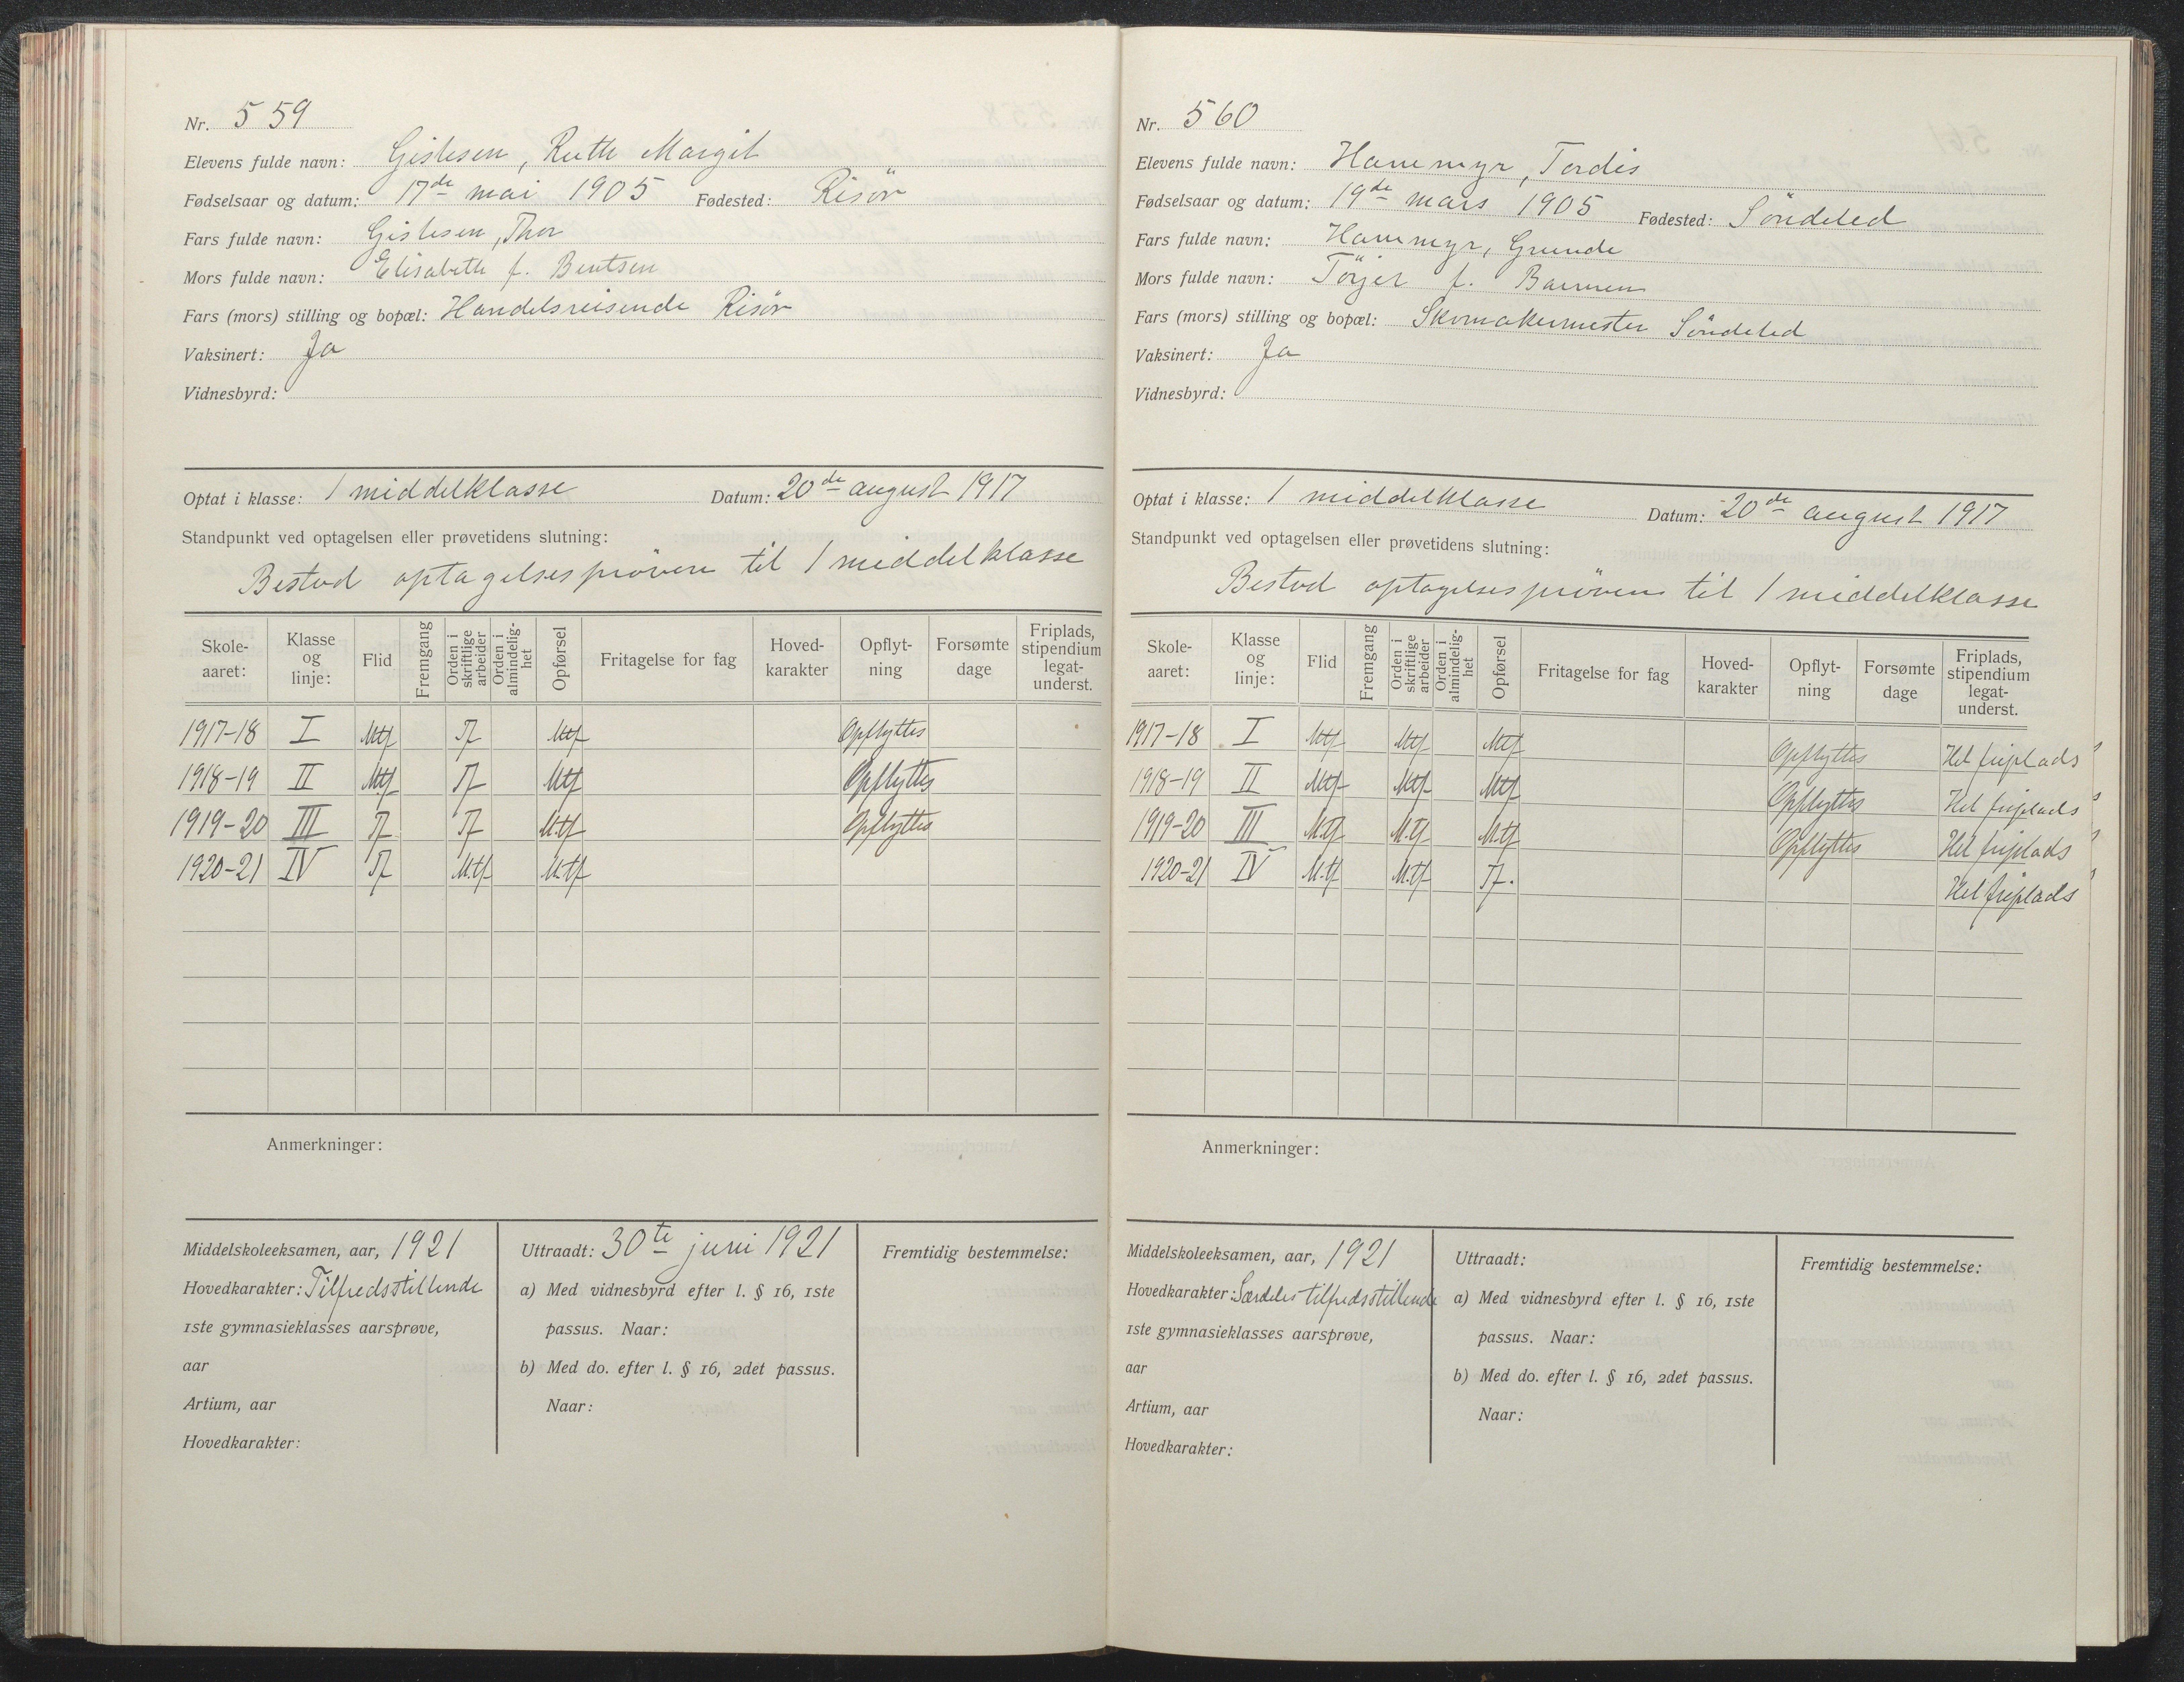 Nr. 559
Elevens fulde navn: Gislesen, Ruth Margit
Fødselsaar og datum: 17de mai 1905 Fødested: Risör
Fars fulde navn: Gislesen, Thor
Mors fulde navn: Elisabeth f. Bentsen
Fars (mors) stilling og bopæl: Handelsreisende Risör
Vaksinert: Ja
Vidnesbyrd:
Optat i klasse: 1 middelklasse Datum: 20de august 1917
Standpunkt ved optagelsen eller prøvetidens slutning:
Bestod optagelsespröven til 1 middelklasse
Skole-aaret: Klasse og linje: Flid Fremgang Orden i skriftlige arbeider Orden i almindelig-het Opførsel Fritagelse for fag Hoved-karakter Opflyt-ning Forsømte dage Friplads, stipendium legat-underst.
1917-18 I Mtf Tf Mtf Opflyttes
1918-19 II Mtf Tf Mtf Opflyttes
1919-20 III Tf Tf M.tf Opflyttes
1920-21 IV Tf M.tf M.tf
Anmerkninger:
Middelskoleeksamen, aar, 1921
Hovedkarakter: Tilfredsstillende
1ste gymnasieklasses aarsprøve,
aar
Artium, aar
Hovedkarakter:
Uttraadt: 30te juni 1921
a) Med vidnesbyrd efter l. § 16, 1ste
passus. Naar:
b) Med do. efter l. § 16, 2det passus.
Naar:
Fremtidig bestemmelse:
Nr. 560
Elevens fulde navn: Hammyr, Tordis
Fødselsaar og datum: 19de mars 1905 Fødested: Söndeled
Fars fulde navn: Hammyr, Grunde
Mors fulde navn: Törjer f. Barmen
Fars (mors) stilling og bopæl: Skomakermester Söndeled
Vaksinert: Ja
Vidnesbyrd:
Optat i klasse: 1 middelklasse Datum: 20de august 1917
Standpunkt ved optagelsen eller prøvetidens slutning:
Bestod optagelsespröven til 1 middelklasse
Skole-aaret: Klasse og linje: Flid Fremgang Orden i skriftlige arbeider Orden i almindelig-het Opførsel Fritagelse for fag Hoved-karakter Opflyt-ning Forsømte dage Friplads, stipendium legat-underst.
1917-18 I Mtf Mtf Mtf Opflyttes Hel friplads
1918-19 II Mtf Mtf Mtf Opflyttes Hel friplads
1919-20 III M.tf M.tf M.tf Opflyttes Hel friplads
1920-21 IV M.tf M.tf Tf. Hel friplads
Anmerkninger:
Middelskoleeksamen, aar, 1921
Hovedkarakter: Særdeles tilfredsstillende
1ste gymnasieklasses aarsprøve,
aar
Artium, aar
Hovedkarakter:
Uttraadt:
a) Med vidnesbyrd efter l. § 16, 1ste
passus. Naar:
b) Med do. efter l. § 16, 2det passus.
Naar:
Fremtidig bestemmelse: